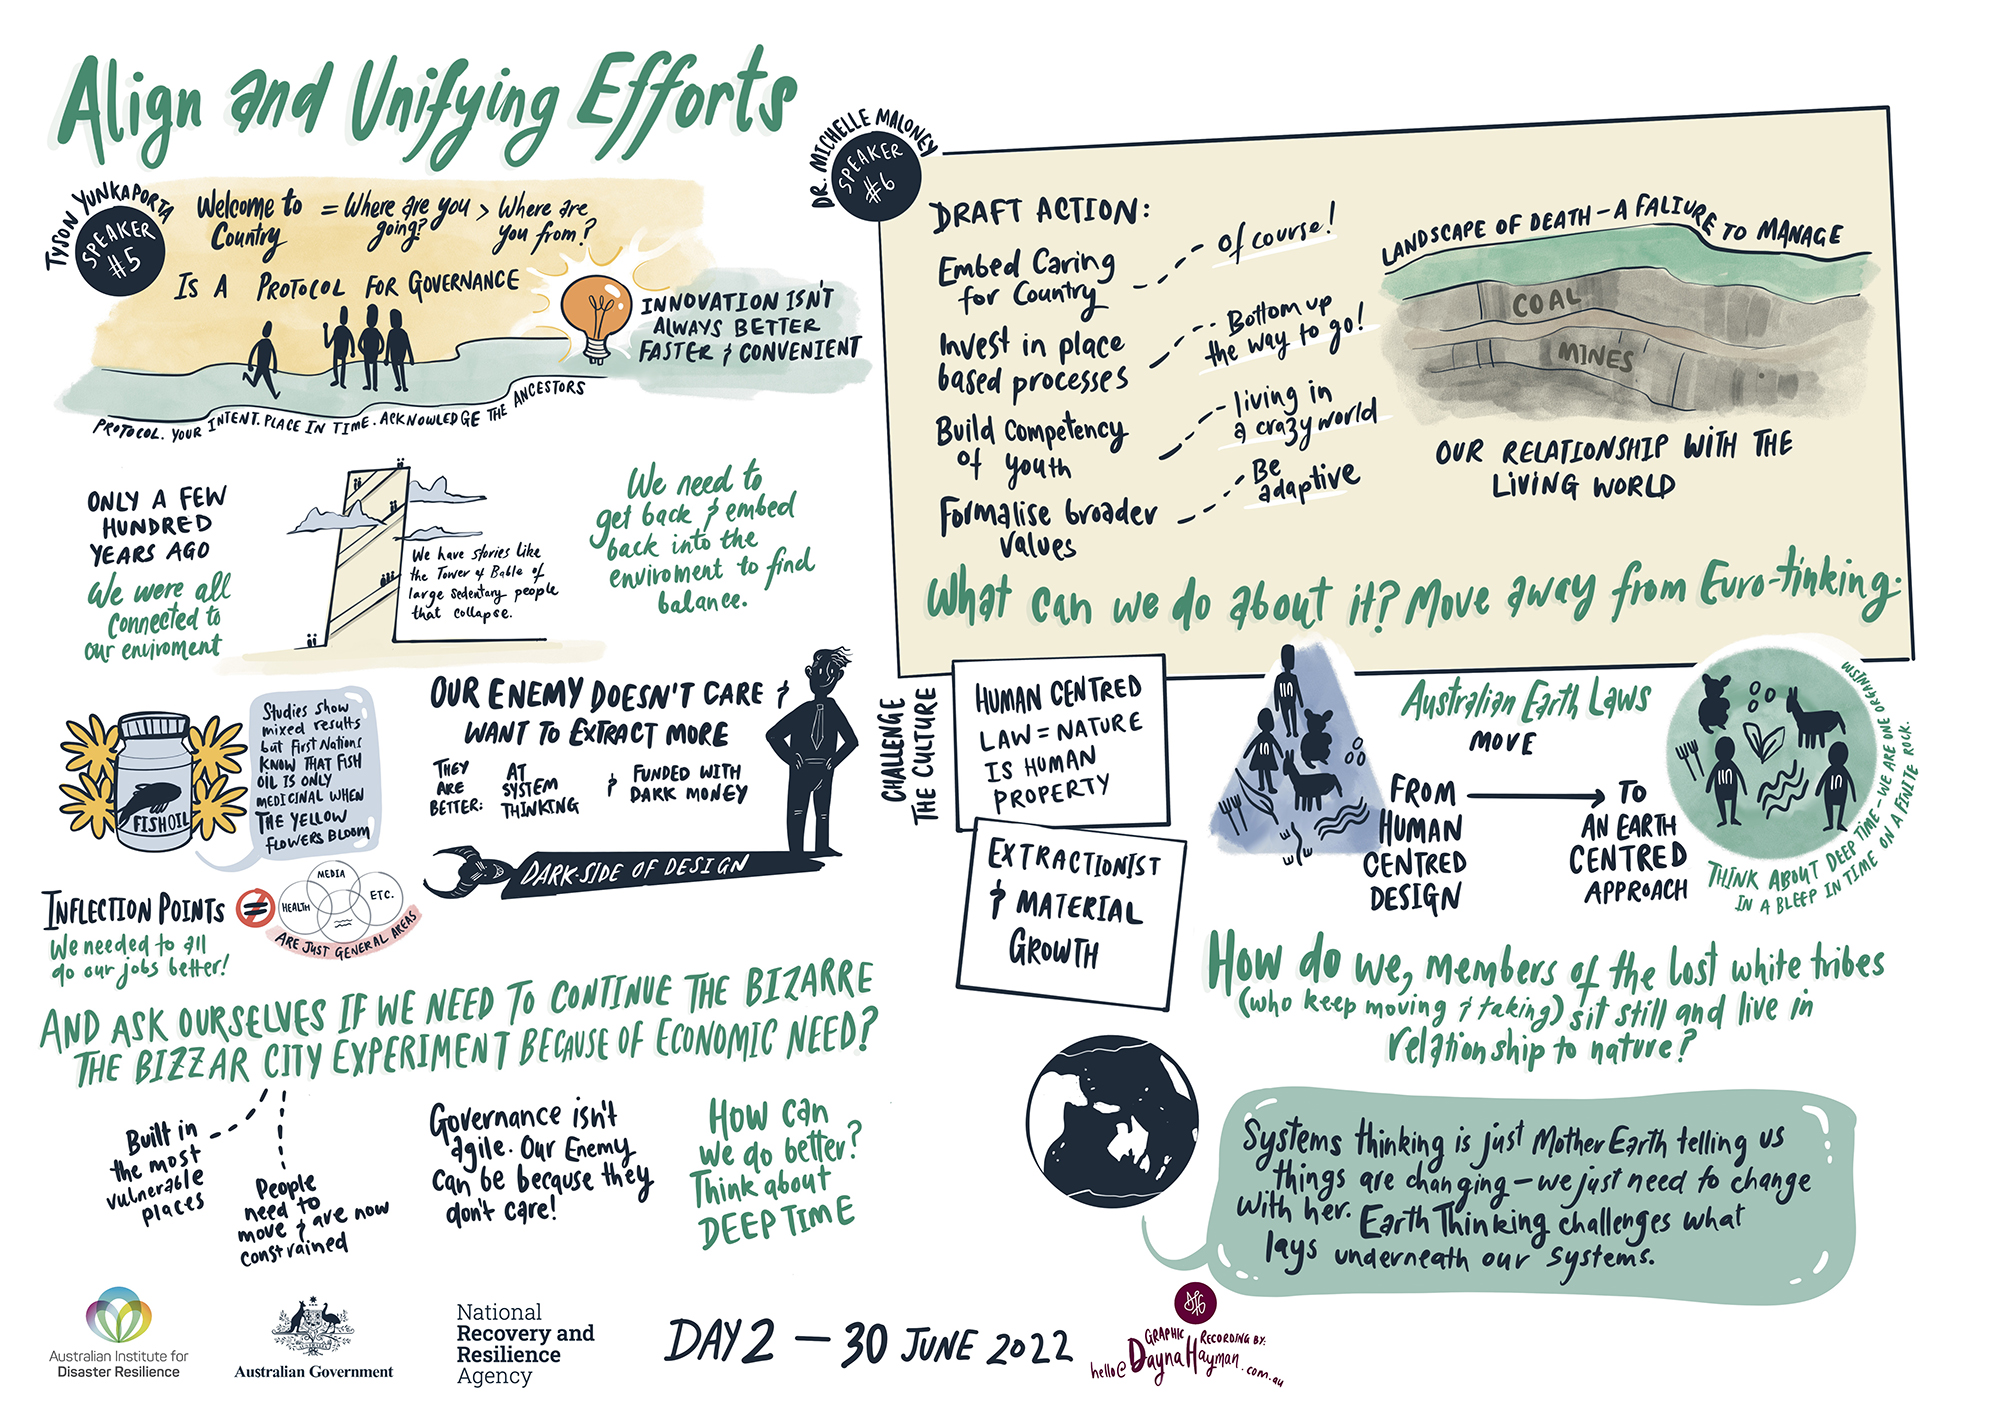 Align and Unifying Efforts
TYSON YUNKAPORTA
SPEAKER
#5
Welcome to
Country
= Where are you
going?
> Where are
you from?
IS A PROTOCOL FOR GOVERNANCE
INNOVATION ISN'T
ALWAYS BETTER
FASTER & CONVENIENT
PROTOCOL. YOUR INTENT. PLACE IN TIME. ACKNOWLEDGE THE ANCESTORS
ONLY A FEW
HUNDRED
YEARS AGO
We were all
connected to
our enviroment
We have stories like
the Tower of Bable of
large sedentary people
that collapse.
We need to
get back & embed
back into the
enviroment to find
balance.
Studies show
mixed results
but First Nations
KNOW THAT FISH
OIL IS ONLY
MEDICINAL WHEN
THE YELLOW
FLOWERS BLOOM
FISH OIL
OUR ENEMY DOESN'T CARE &
WANT TO EXTRACT MORE
THEY
ARE
BETTER:
AT
SYSTEM
THINKING
& FUNDED WITH
DARK MONEY
DARK-SIDE OF DESIGN
INFLECTION POINTS
=
MEDIA
HEALTH
ETC.
ARE JUST GENERAL AREAS
We needed to all
do our jobs better!
AND ASK OURSELVES IF WE NEED TO CONTINUE THE BIZARRE
THE BIZZAR CITY EXPERIMENT BECAUSE OF ECONOMIC NEED?
Built in
the most
vulnerable
places
People
need to
move & are now
constrained
Governance isn't
agile. Our Enemy
can be because they
don't care!
How can
we do better?
Think about
DEEP TIME
DR. MICHELLE MALONEY
SPEAKER
#6
DRAFT ACTION:
Embed Caring
for Country
Of course!
Invest in place
based processes
Bottom up
the way to go!
Build Competency
of youth
living in
a crazy world
Formalise broader
values
Be
adaptive
LANDSCAPE OF DEATH – A FALIURE TO MANAGE
COAL
MINES
OUR RELATIONSHIP WITH THE
LIVING WORLD
What can we do about it? Move away from Euro-tinking:
CHALLENGE
THE CULTURE
HUMAN CENTRED
LAW = NATURE
IS HUMAN
PROPERTY
EXTRACTIONIST
& MATERIAL
GROWTH
Australian Earth Laws
MOVE
FROM
HUMAN
CENTRED
DESIGN
TO
AN EARTH
CENTRED
APPROACH
THINK ABOUT DEEP TIME – WE ARE ONE ORGANISM
IN A BLEEP IN TIME ON A FINITE ROCK.
How do we, members of the lost white tribes
(who keep moving & taking) sit still and live in
relationship to nature?
Systems thinking is just Mother Earth telling us
things are changing – we just need to change
with her. Earth Thinking challenges what
lays underneath our systems.
Australian Institute for
Disaster Resilience
Australian Government
National
Recovery and
Resilience
Agency
DAY 2 – 30 JUNE 2022
GRAPHIC RECORDING BY:
hello@DaynaHayman.com.au